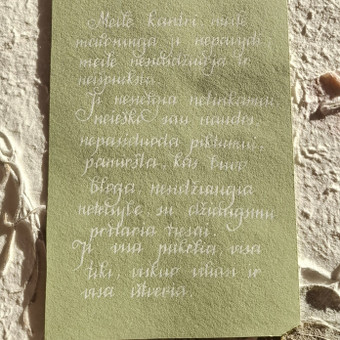 Meilė kantri, meilė
maloninga, ji nepavydi
meilė nesididžiuoja ir
neišpuiksta.
Ji nesielgia netinkamai,
neieško sau naudos,
nepasiduoda piktumui,
pamiršta, kas buvo
bloga, nesidžiaugia
neteisybe, su džiaugsmu
pritaria tiesai.
Ji visa pakelia, visa
tiki, viskuo viliasi ir
visa ištveria.